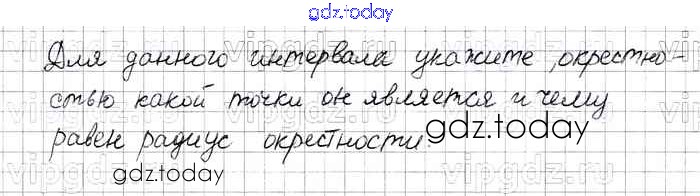 gdz.today
Для данного интервала укажите, окрестно-
стью какой точки он является и чему
равен радиус окрестности.
gdz.today
gdz.today